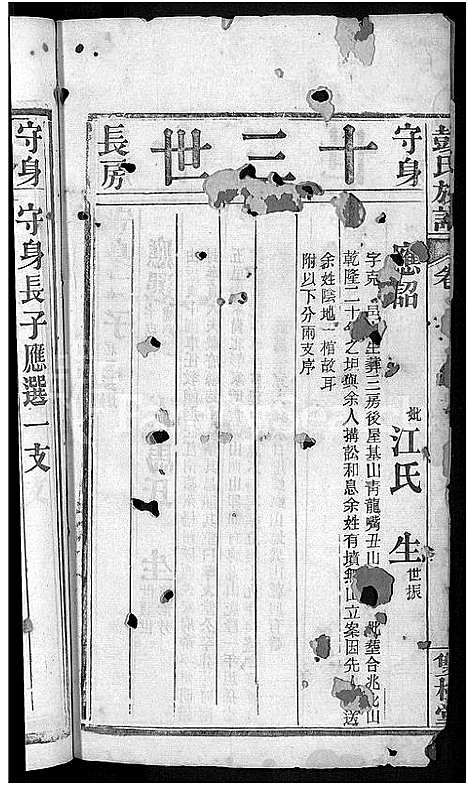 彭氏族譜
卷
雙桂堂
守身 十三世 長房
應詔 妣江氏 生世振
字克 邑 生葬三房後屋基山青龍嘴丑山 妣塟合兆此山
乾隆二十 之坦與余人搆訟和息余姓有墳無山立案因先人 送
余姓陰地一棺故耳
附以下分兩支序
守身 守身長子應選一支